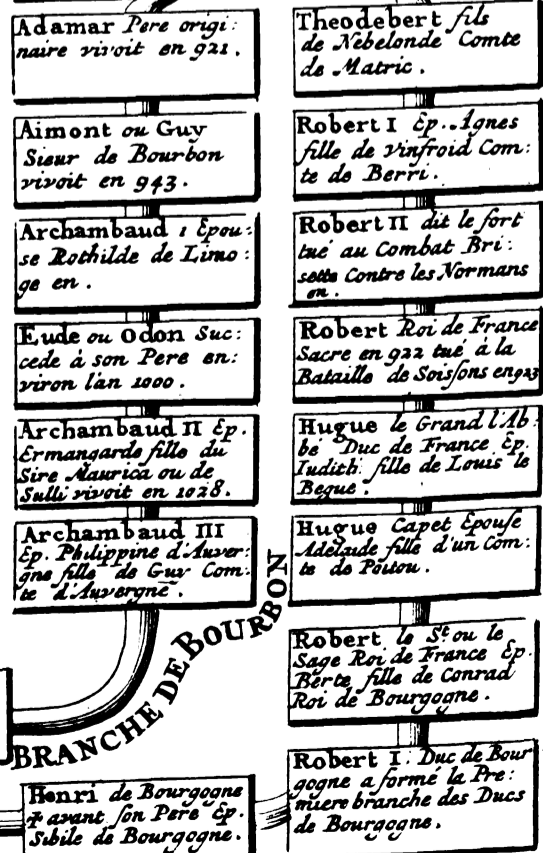 Adamar Pere origi:
naire vivoit en 921.
Aimont ou Guy
Sieur de Bourbon
vivoit en 943.
Archambaud 1 Epou:
se Rothilde de Limo:
ge en.
Eude ou Odon Suc:
cede à son Pere en:
viron l'an 1000.
Archambaud II Ep.
Ermangarde fille du
Sire Maurica ou de
Sulli vivoit en 1028.
Archambaud III
Ep. Philippine d'Auver:
gne fille de Guy Com:
te d'Auvergne.
BRANCHE DE BOURBON
Henri de Bourgogne
✝ avant son Pere Ep.
Sibile de Bourgogne.
Theodebert fils
de Nebelonde Comte
de Matric.
Robert I Ep. Agnes
fille de vinfroid Com:
te de Berri.
Robert II dit le fort
tué au Combat Bri:
sette Contre les Normans
en.
Robert Roi de France
Sacre en 922 tué à la
Bataille de Soissons en 923
Hugue le Grand l'Ab:
bé Duc de France Ep.
Iudith fille de Louis le
Begue.
Hugue Capet Epouse
Adelaude fille d'un Com:
te de Poitou.
Robert le St. ou le
Sage Roi de France Ep.
Berte fille de Conrad
Roi de Bourgogne.
Robert I. Duc de Bour
gogne a formé la Pre:
miere branche des Ducs
de Bourgogne.